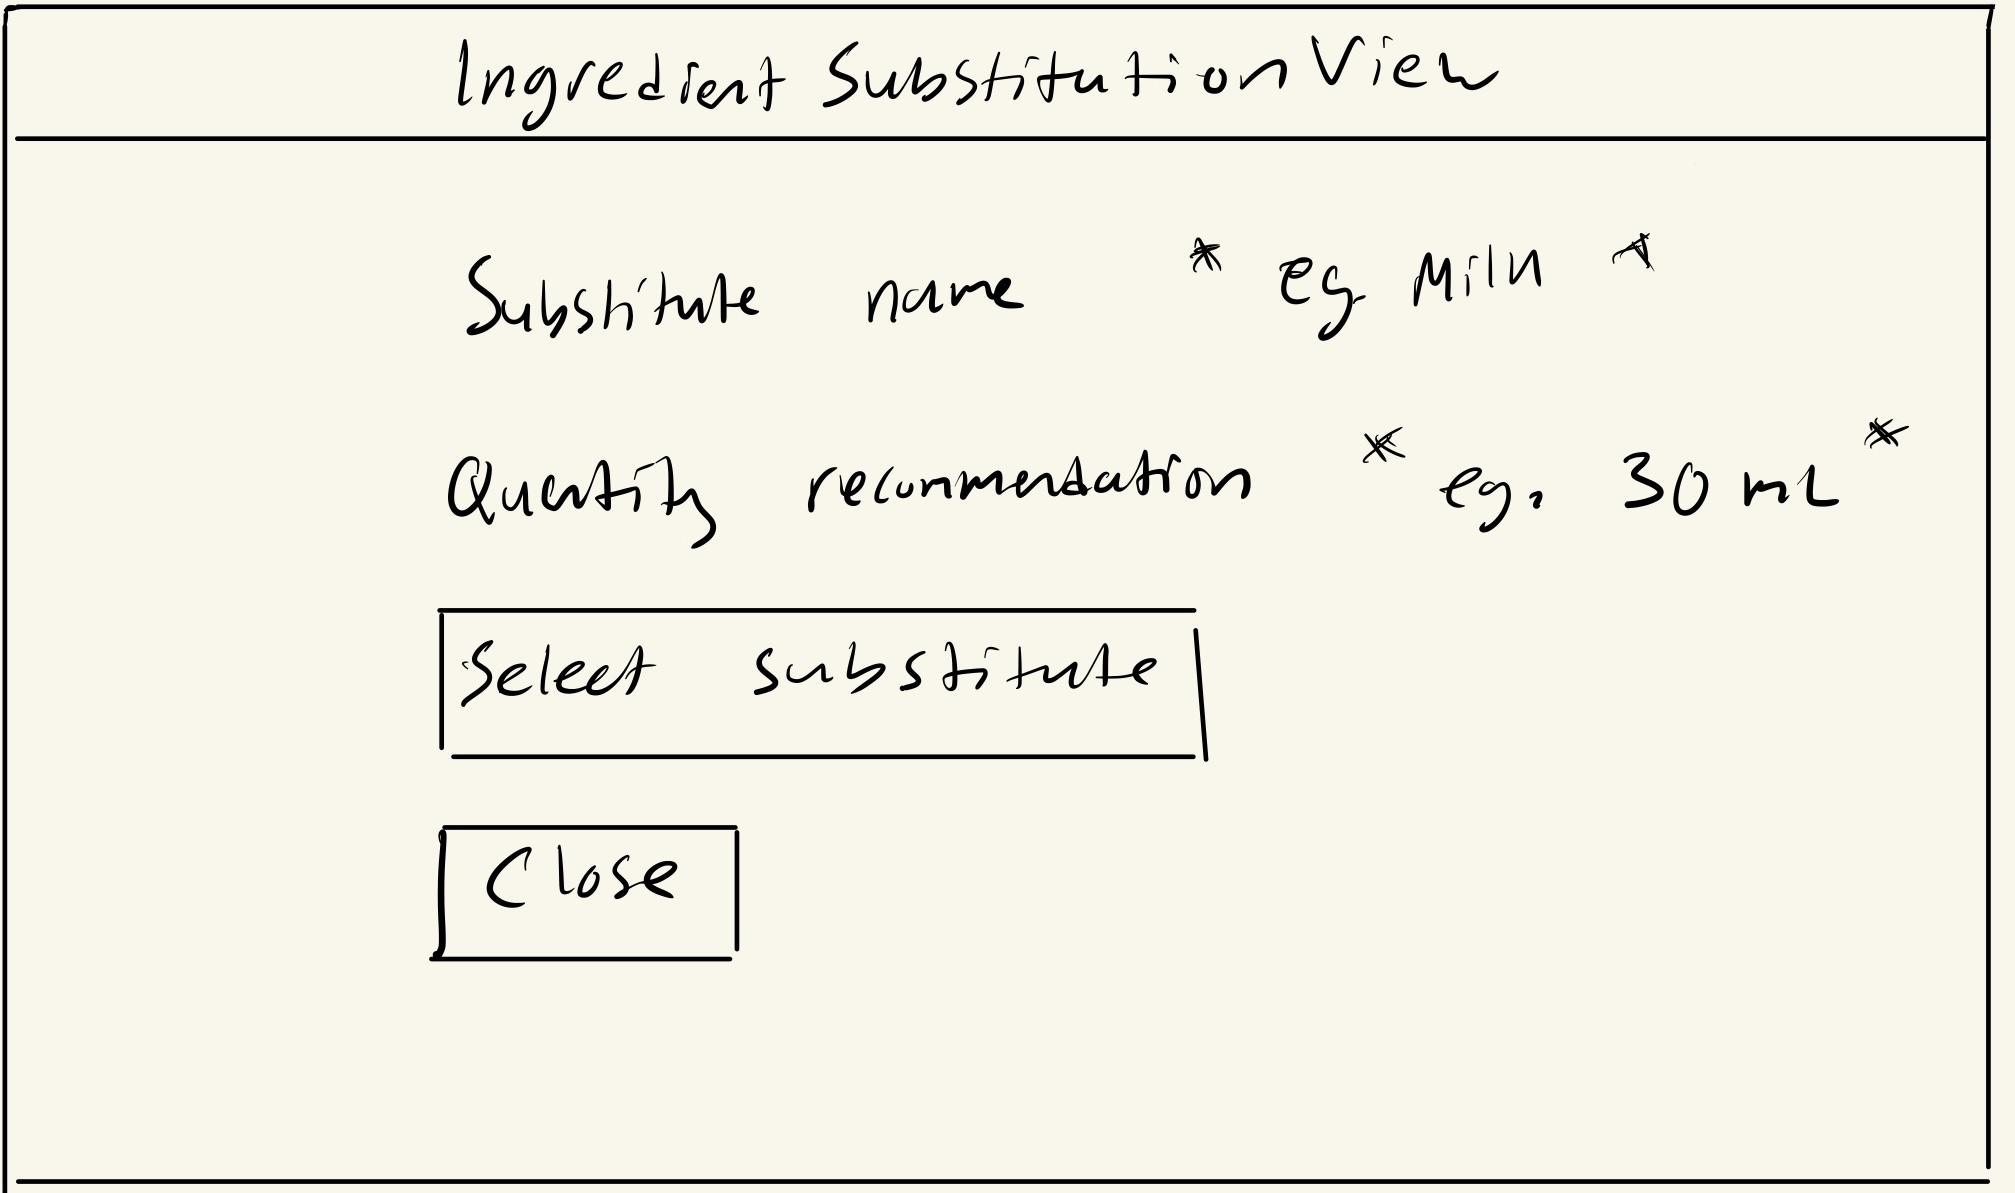 Ingredient Substitution View
Substitute name * eg. Milk *
Quantity recommendation * eg. 30 mL *
Select substitute
Close